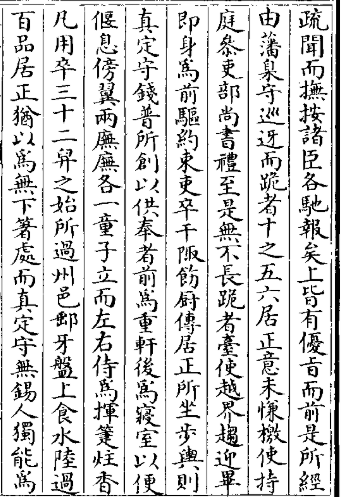 疏聞而撫按諸臣各馳報矣上皆有優旨而前是所經
由藩臬守巡迓而跪者十之五六居正意未慊檄使持
庭叅吏部尚書禮至是無不長跪者臺使越界趨迎畢
即身為前驅約束吏卒干陬飭厨傳居正所坐步輿則
真定守錢普所創以供奉者前為重軒後為寢室以便
偃息傍翼兩廡廡各一童子立而左右侍為揮箑炷香
凡用卒三十二舁之始所過州邑郵牙盤上食水陸過
百品居正猶以為無下箸處而真定守無錫人獨能為